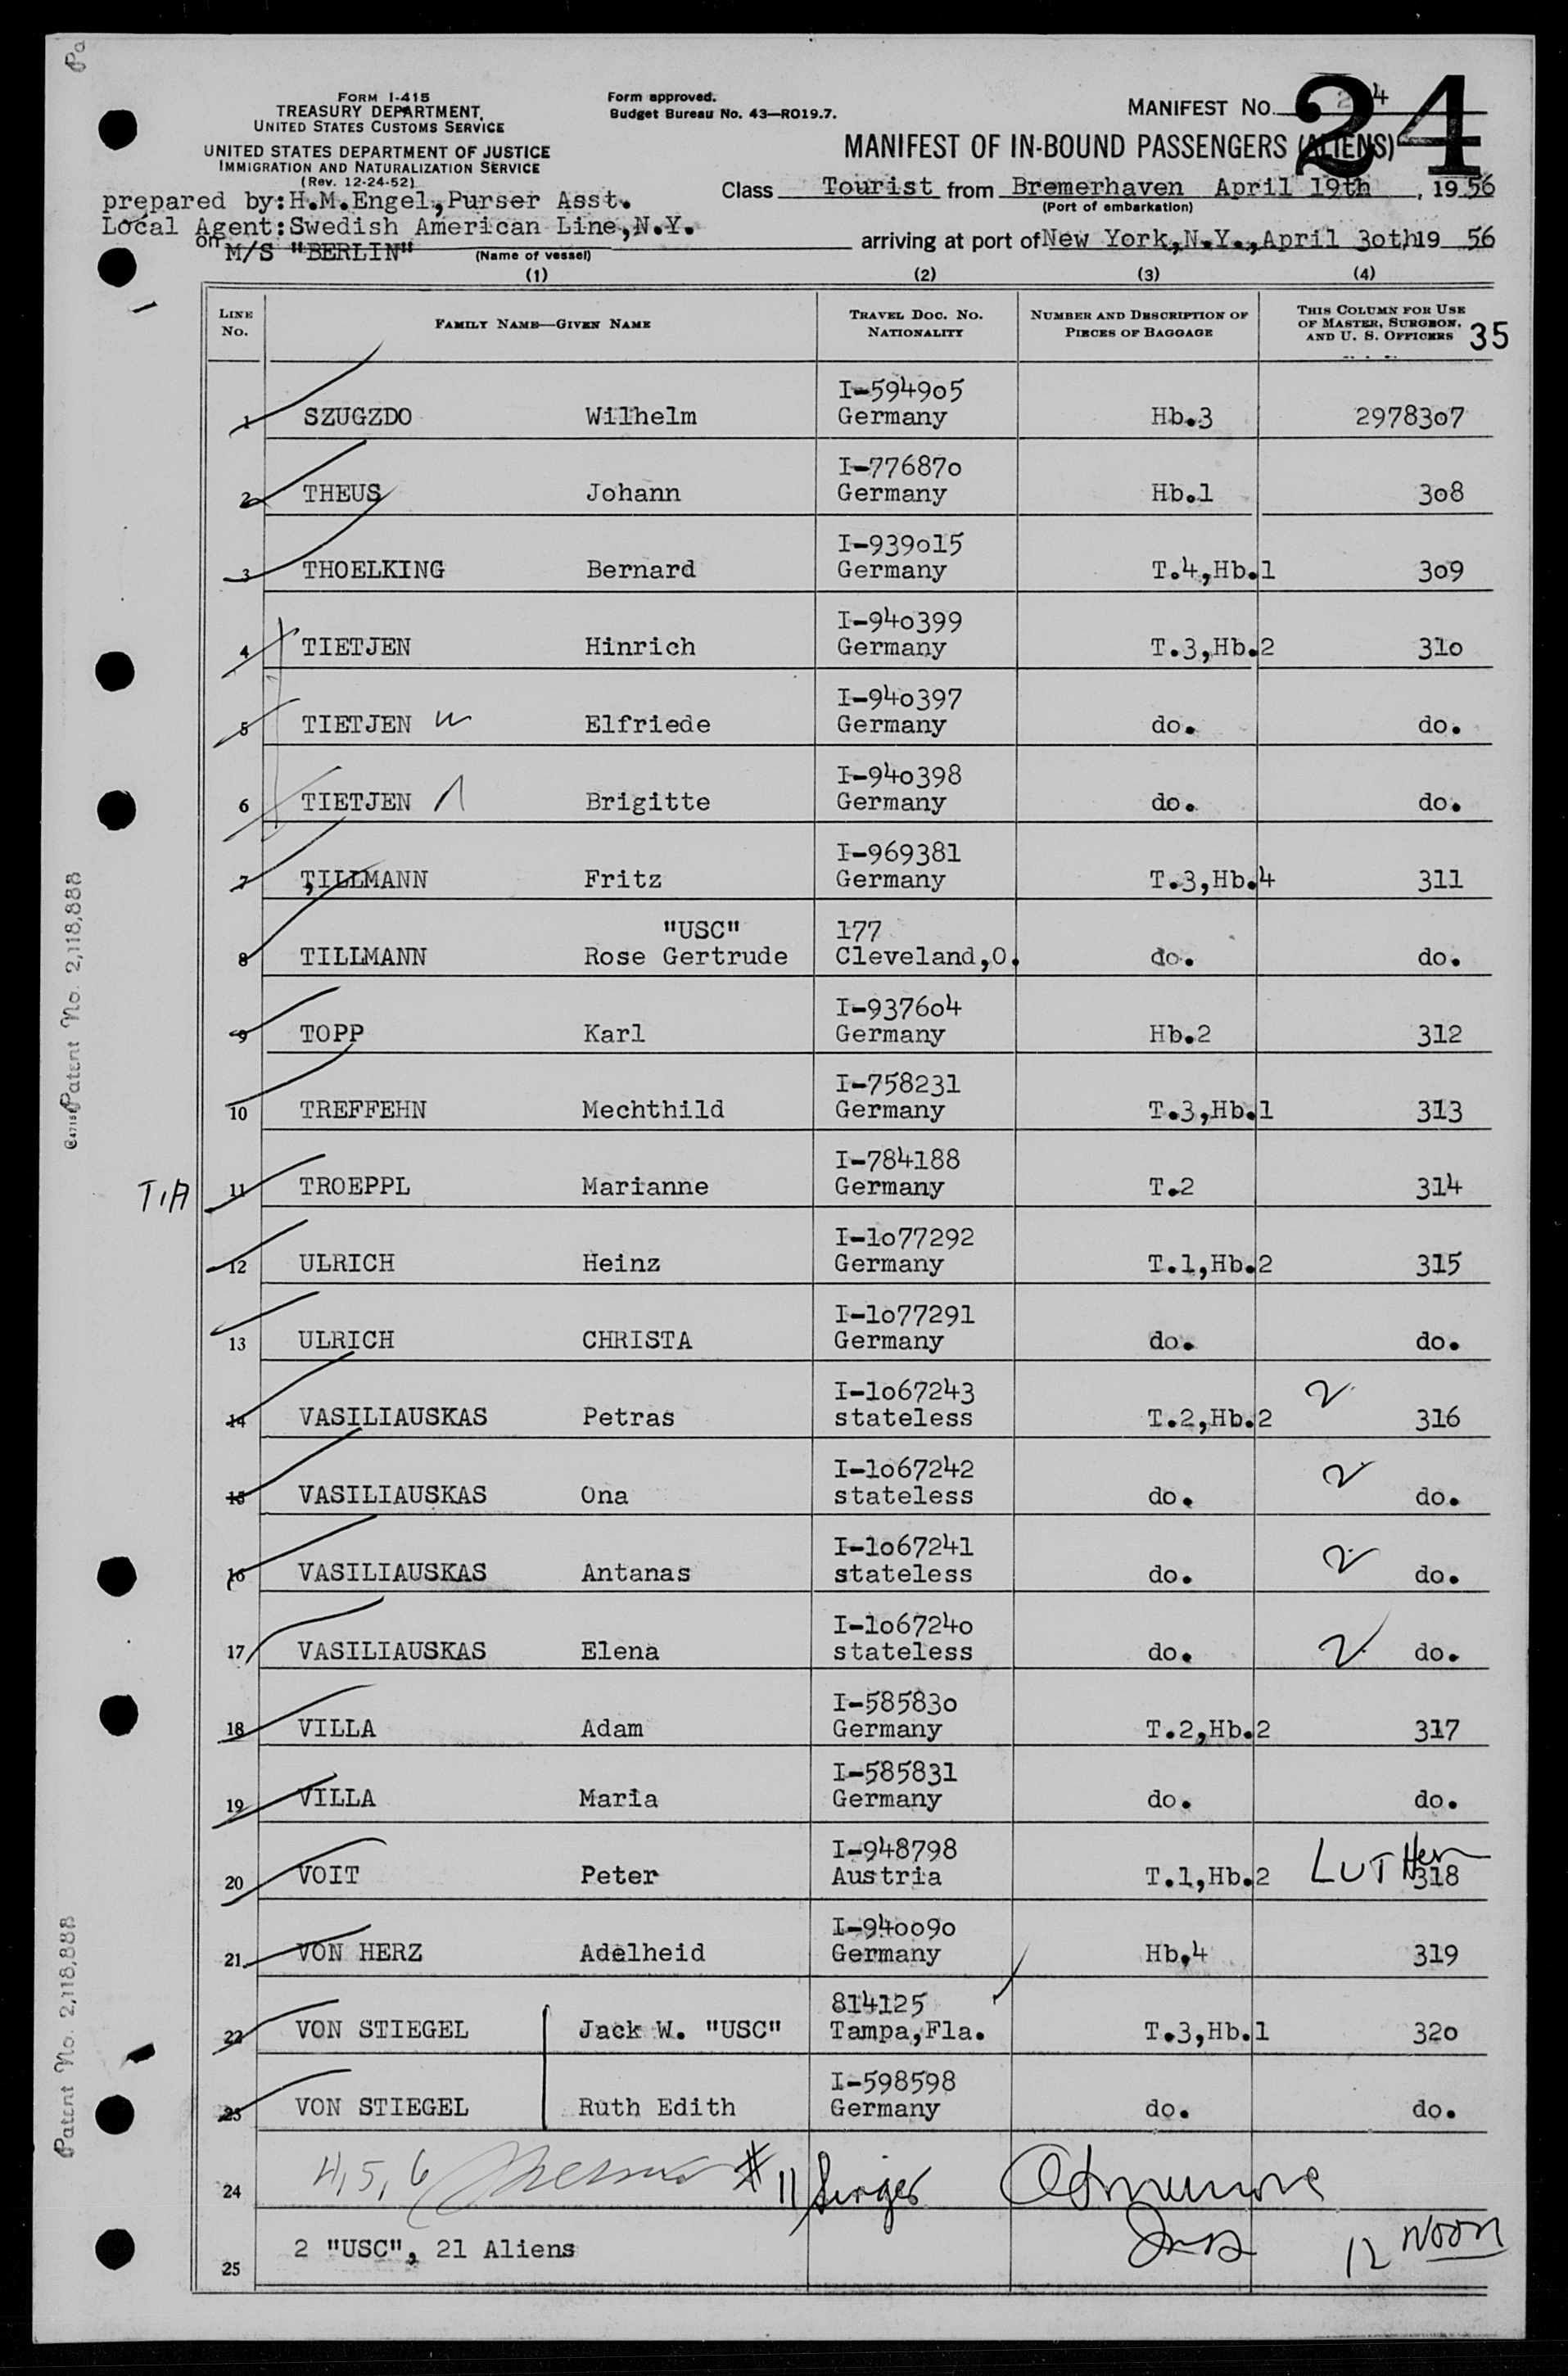 FORM I-415
TREASURY DEPARTMENT,
UNITED STATES CUSTOMS SERVICE
UNITED STATES DEPARTMENT OF JUSTICE
IMMIGRATION AND NATURALIZATION SERVICE
(Rev. 12-24-52)
Form approved.
Budget Bureau No. 43—RO19.7.
MANIFEST NO. 24
24
MANIFEST OF IN-BOUND PASSENGERS (ALIENS)
prepared by: H.M.Engel,Purser Asst.
Class Tourist from Bremerhaven April 19th, 1956
(Port of embarkation)
Local Agent: Swedish American Line,N.Y.
on M/S "BERLIN" arriving at port of New York,N.Y.,April 3oth 19 56
(Name of vessel)
(1) (2) (3) (4)
LINE NO. FAMILY NAME—GIVEN NAME TRAVEL DOC. NO. NATIONALITY NUMBER AND DESCRIPTION OF PIECES OF BAGGAGE THIS COLUMN FOR USE OF MASTER, SURGEON, AND U. S. OFFICERS 35
I-5949o5
1 SZUGZDO Wilhelm Germany Hb.3 29783o7
I-77687o
2 THEUS Johann Germany Hb.1 3o8
I-939o15
3 THOELKING Bernard Germany T.4,Hb.1 3o9
I-94o399
4 TIETJEN Hinrich Germany T.3,Hb.2 31o
I-94o397
5 TIETJEN w Elfriede Germany do. do.
I-94o398
6 TIETJEN Brigitte Germany do. do.
I-969381
7 TILLMANN Fritz Germany T.3,Hb.4 311
"USC" 177
8 TILLMANN Rose Gertrude Cleveland,O. do. do.
I-9376o4
9 TOPP Karl Germany Hb.2 312
I-758231
10 TREFFEHN Mechthild Germany T.3,Hb.1 313
I-784188
T.A 11 TROEPPL Marianne Germany T.2 314
I-1o77292
12 ULRICH Heinz Germany T.1,Hb.2 315
I-1o77291
13 ULRICH CHRISTA Germany do. do.
I-1o67243
14 VASILIAUSKAS Petras stateless T.2,Hb.2 2 316
I-1o67242
15 VASILIAUSKAS Ona stateless do. 2 do.
I-1o67241
16 VASILIAUSKAS Antanas stateless do. 2 do.
I-1o6724o
17 VASILIAUSKAS Elena stateless do. 2 do.
I-58583o
18 VILLA Adam Germany T.2,Hb.2 317
I-585831
19 VILLA Maria Germany do. do.
I-948798
20 VOIT Peter Austria T.1,Hb.2 LUTHer 318
I-94oo9o
21 VON HERZ Adelheid Germany Hb.4 319
814125
22 VON STIEGEL Jack W. "USC" Tampa,Fla. T.3,Hb.1 32o
I-598598
23 VON STIEGEL Ruth Edith Germany do. do.
24 4,5,6 #11 Singer
25 2 "USC", 21 Aliens 12 NOON
Patent No. 2,118,888
Patent No. 2,118,888